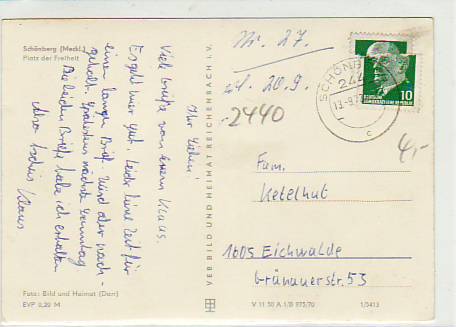 Schönberg (Meckl.)
Platz der Freiheit
Ihr Lieben,
Viele Grüße von Eurem Klaus.
Es geht mir gut. Leider keine Zeit für
einen langen Brief. Wird aber nach-
geholt. Spätestens nächste Sonntag
Die beiden Briefe habe ich erhalten
Also tschüs Klaus
Foto: Bild und Heimat (Darr)
EVP 0,20 M
VEB BILD UND HEIMAT REICHENBACH i. V.
V 11 50 A 1/B 975/70
1/5413
Nr. 27.
20.9.
2440
SCHÖNB
244
13.-9.7
c
10
DEUTSCHE
DEMOKRATISCHE REPUBLIK
4,-
Fam.
Ketelhut
1605 Eichwalde
Grünauerstr. 53